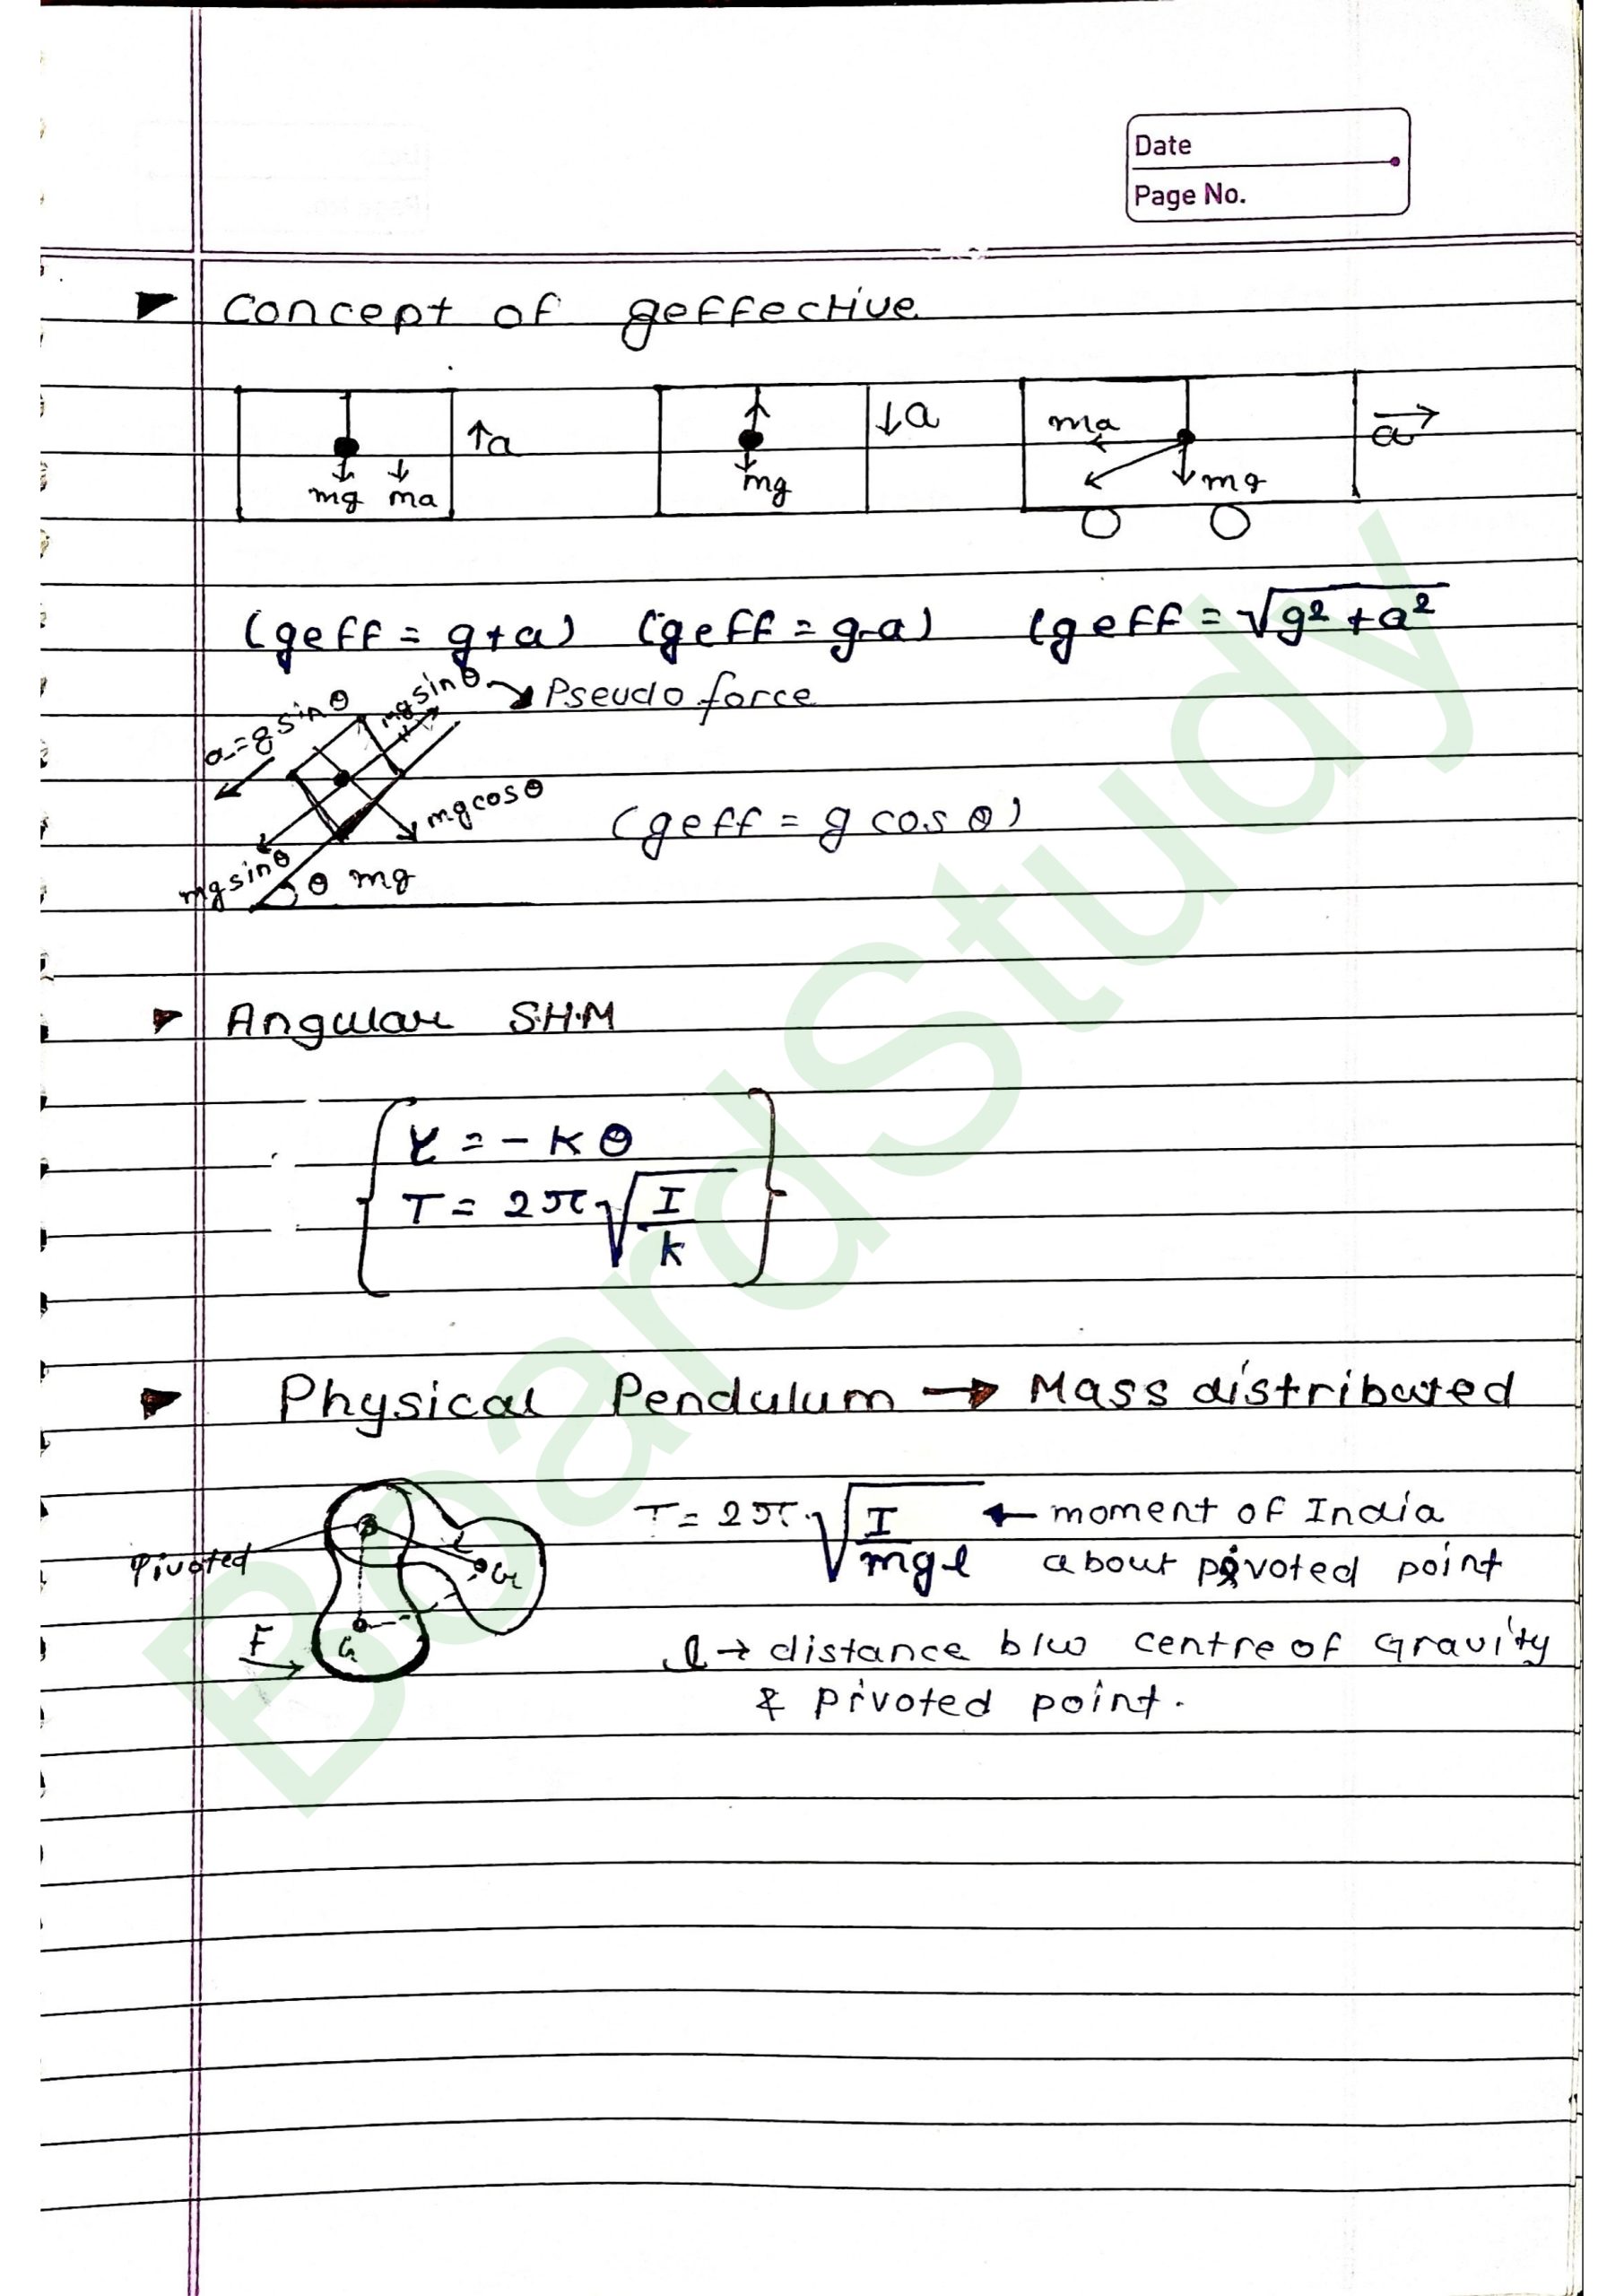 Date
Page No.
Concept of geffective
↑a
mg ma
↓a
mg
ma
mg
a
(geff = g+a) (geff = g-a) (geff = √g² + a²
a=g sinθ
mg sinθ → Pseudo force
mg cosθ
(geff = g cos θ)
mg sinθ
θ mg
Angular S.H.M
τ = - K θ
T = 2π √I/k
Physical Pendulum → Mass distributed
T = 2π √I/mgl ← moment of India
about pivoted point
Pivoted
l
G
F
G
l → distance b/w centre of Gravity
& pivoted point.
BoardStudy